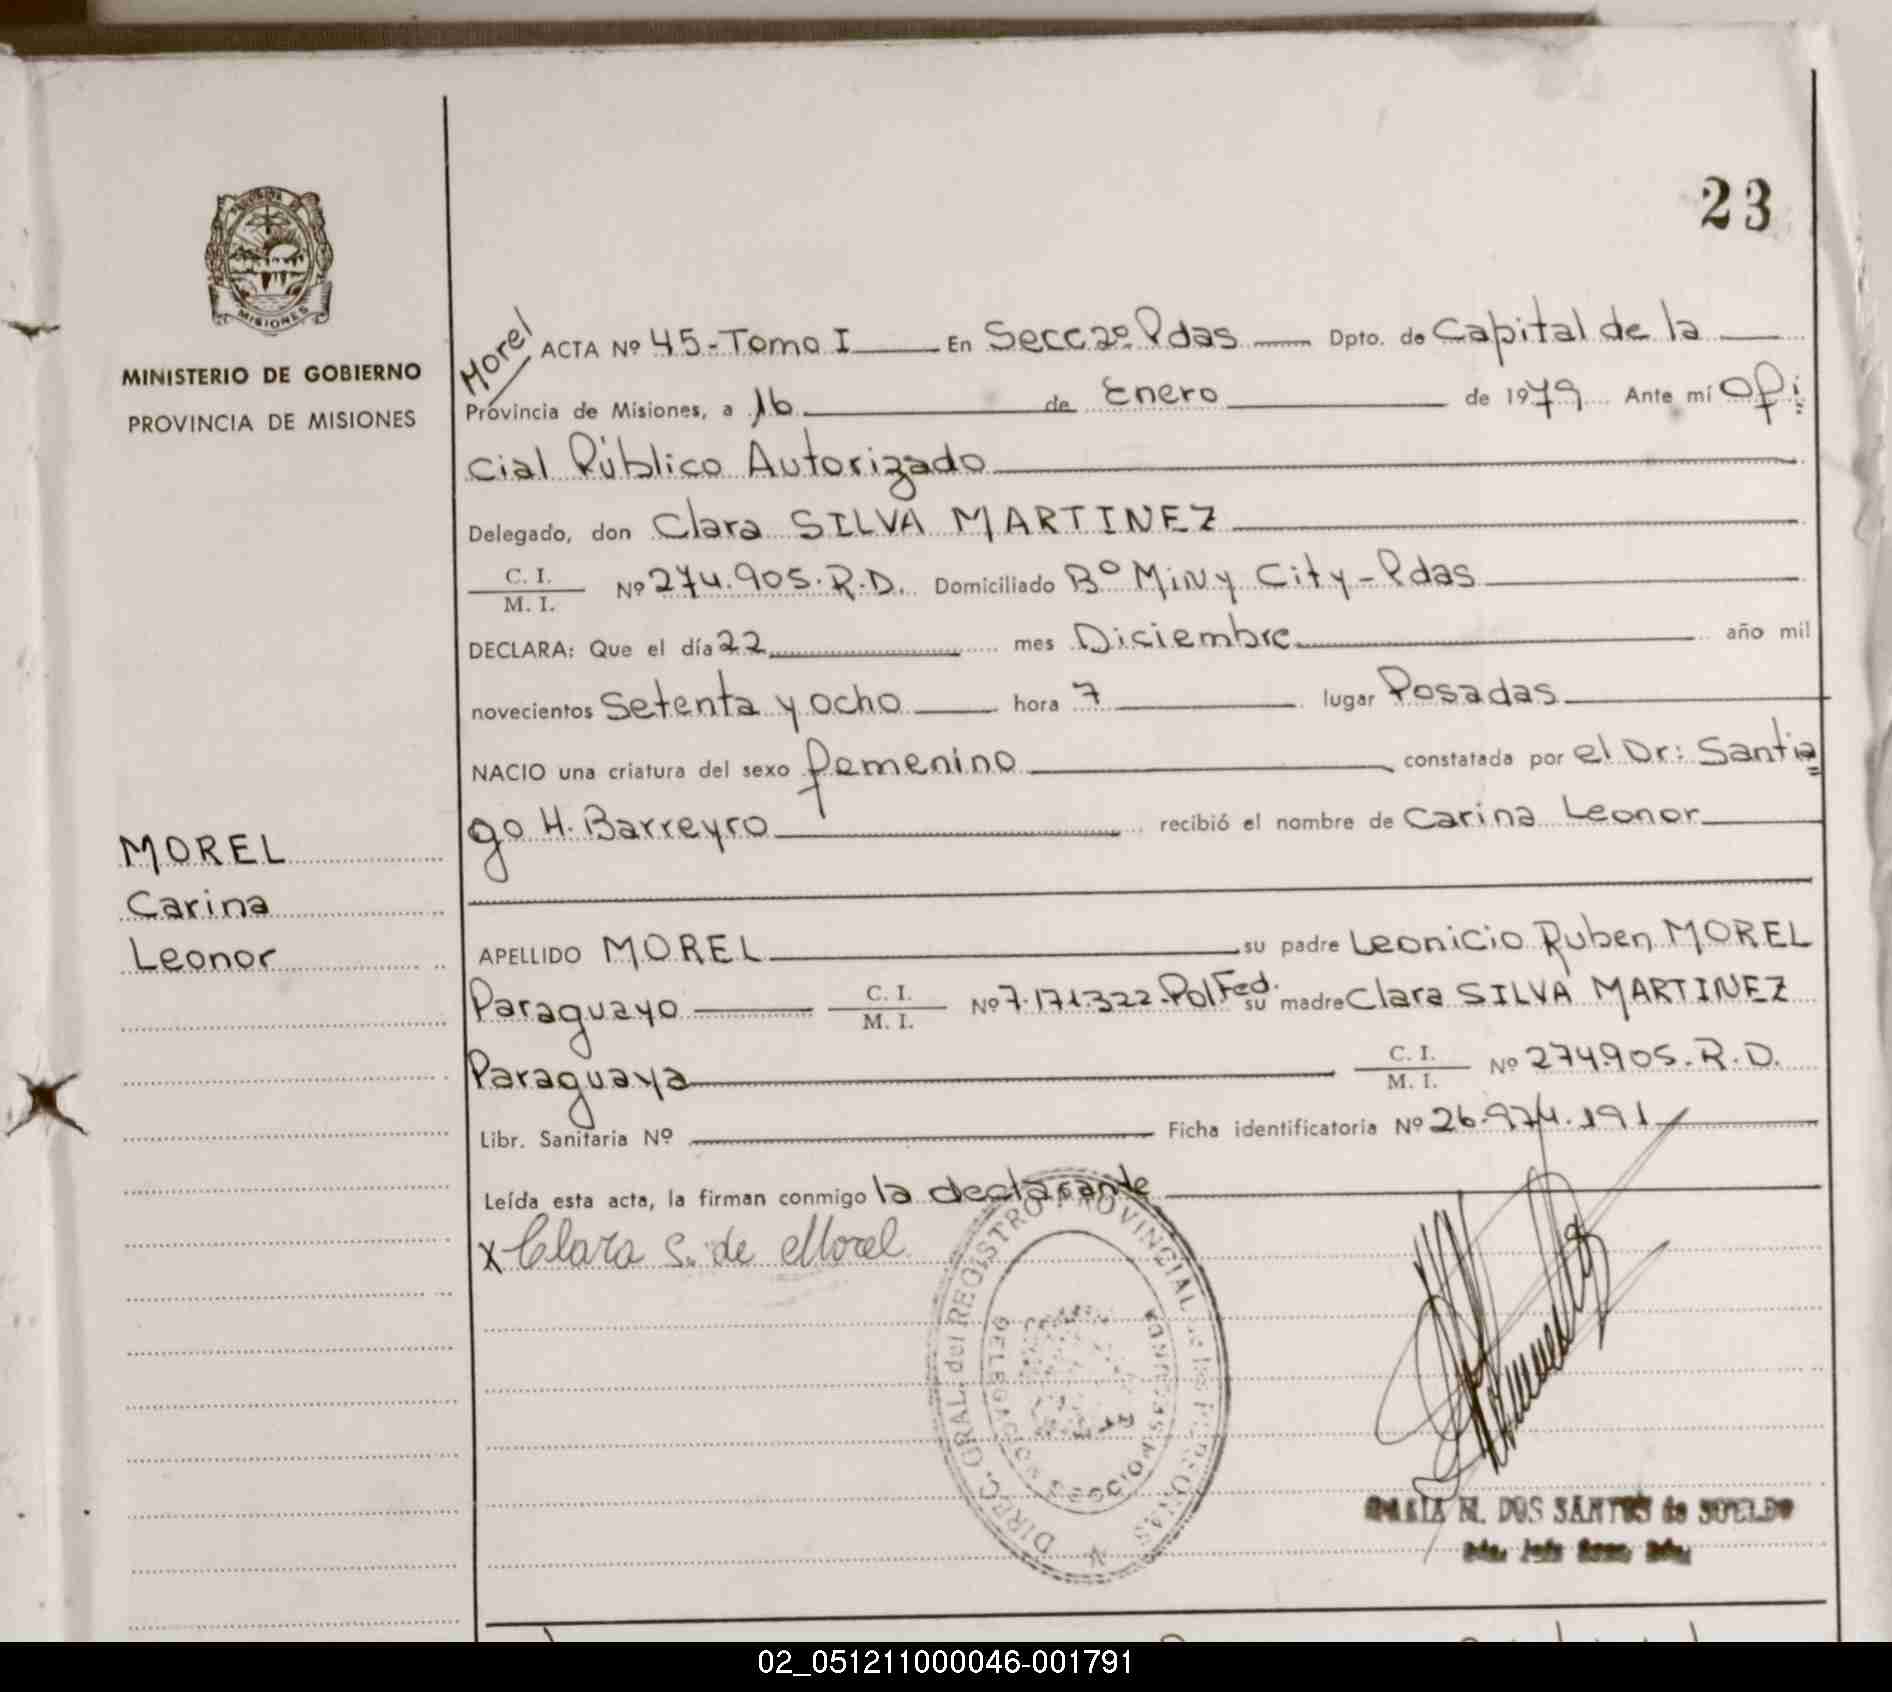 23
MISIONES
MINISTERIO DE GOBIERNO
PROVINCIA DE MISIONES
MOREL
Carina
Leonor
Morel
ACTA Nº 45-Tomo I En Secc 2º Pdas Dpto. de Capital de la
Provincia de Misiones, a 16 de Enero de 1979 Ante mí Ofi
cial Público Autorizado
Delegado, don Clara SILVA MARTINEZ
C. I.
M. I. Nº 274.905.R.D. Domiciliado Bº Miny City-Pdas
DECLARA: Que el día 22 mes Diciembre año mil
novecientos Setenta y ocho hora 7 lugar Posadas
NACIO una criatura del sexo femenino constatada por el Dr: Santia
go H. Barreyro recibió el nombre de Carina Leonor
APELLIDO MOREL su padre Leonicio Ruben MOREL
Paraguayo C. I. M. I. Nº 7.171.322.Pol Fed. su madre Clara SILVA MARTINEZ
Paraguaya C. I. M. I. Nº 274.905.R.D.
Libr. Sanitaria Nº Ficha identificatoria Nº 26.974.191
Leída esta acta, la firman conmigo la declarante
x Clara S. de Morel
DIREC. GRAL. del REGISTRO PROVINCIAL de las PERSONAS
DELEGACION
POSADAS
M. DOS SANTOS de SUELDO
02_051211000046-001791